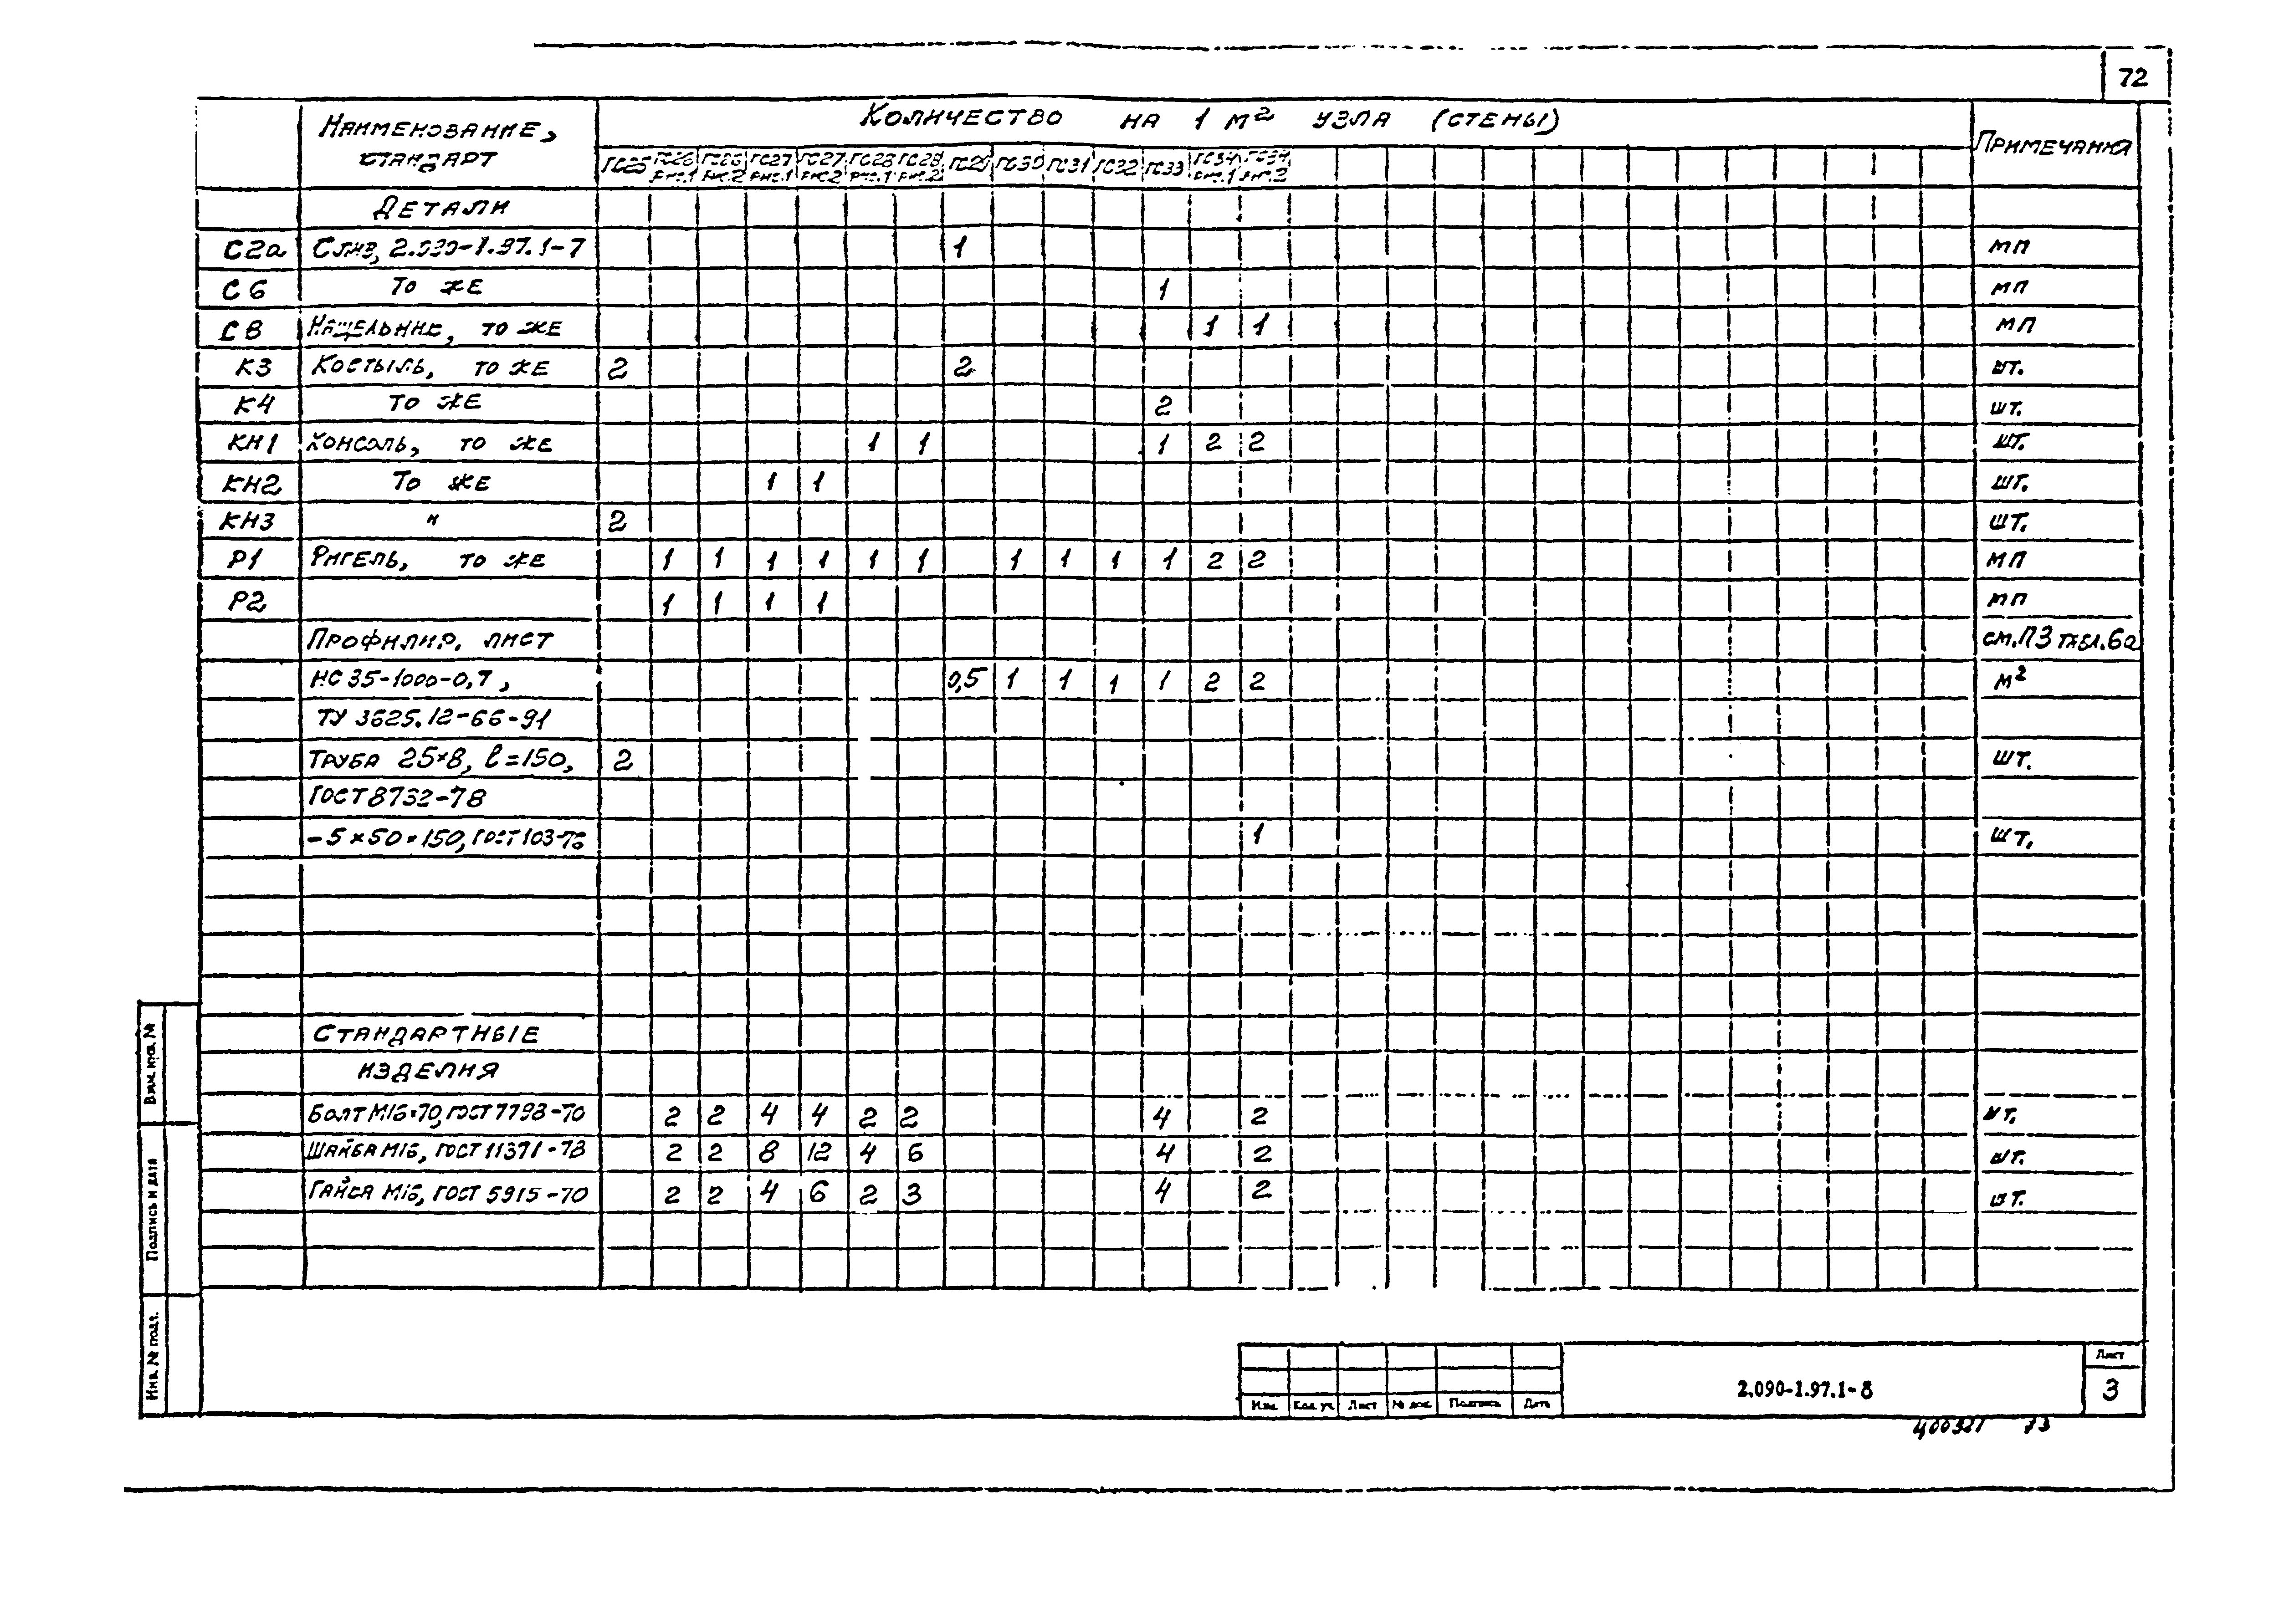 72
Наименование, Количество на 1 м² узла (стены) Примечания
стандарт ГС25 ГС26 рис.1 ГС26 рис.2 ГС27 рис.1 ГС27 рис.2 ГС28 рис.1 ГС28 рис.2 ГС29 ГС30 ГС31 ГС32 ГС33 ГС34 рис.1 ГС34 рис.2
Детали
С2а Слив, 2.090-1.97.1-7 1 мп
С6 То же 1 мп
С8 Нащельник, то же 1 1 мп
К3 Костыль, то же 2 2 шт.
К4 То же 2 шт.
КН1 Консоль, то же 1 1 1 2 2 шт.
КН2 То же 1 1 шт.
КН3 " 2 шт.
Р1 Ригель, то же 1 1 1 1 1 1 1 1 1 1 2 2 мп
Р2 1 1 1 1 мп
Профилир. лист см. ПЗ табл. 6а
НС 35-1000-0,7, 0,5 1 1 1 1 2 2 м²
ТУ 3625.12-66-91
Труба 25×8, ℓ=150, 2 шт.
ГОСТ 8732-78
-5×50×150, ГОСТ 103-76 1 шт.
Стандартные
изделия
Болт М16×70, ГОСТ 7798-70 2 2 4 4 2 2 4 2 шт.
Шайба М16, ГОСТ 11371-78 2 2 8 12 4 6 4 2 шт.
Гайка М16, ГОСТ 5915-70 2 2 4 6 2 3 4 2 шт.
Взам. инв. №
Подпись и дата
Инв. № подл.
Изм. Кол. уч. Лист № док. Подпись Дата
2.090-1.97.1-8
Лист
3
400321 73